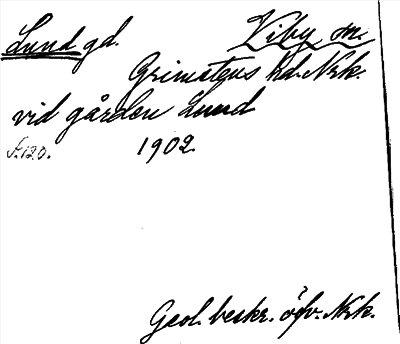 Lund gd. Viby sn.
Grimstens hd. Nrk.
vid gården Lund
s. 120. 1902
Geol. beskr. öfv. Nrk.